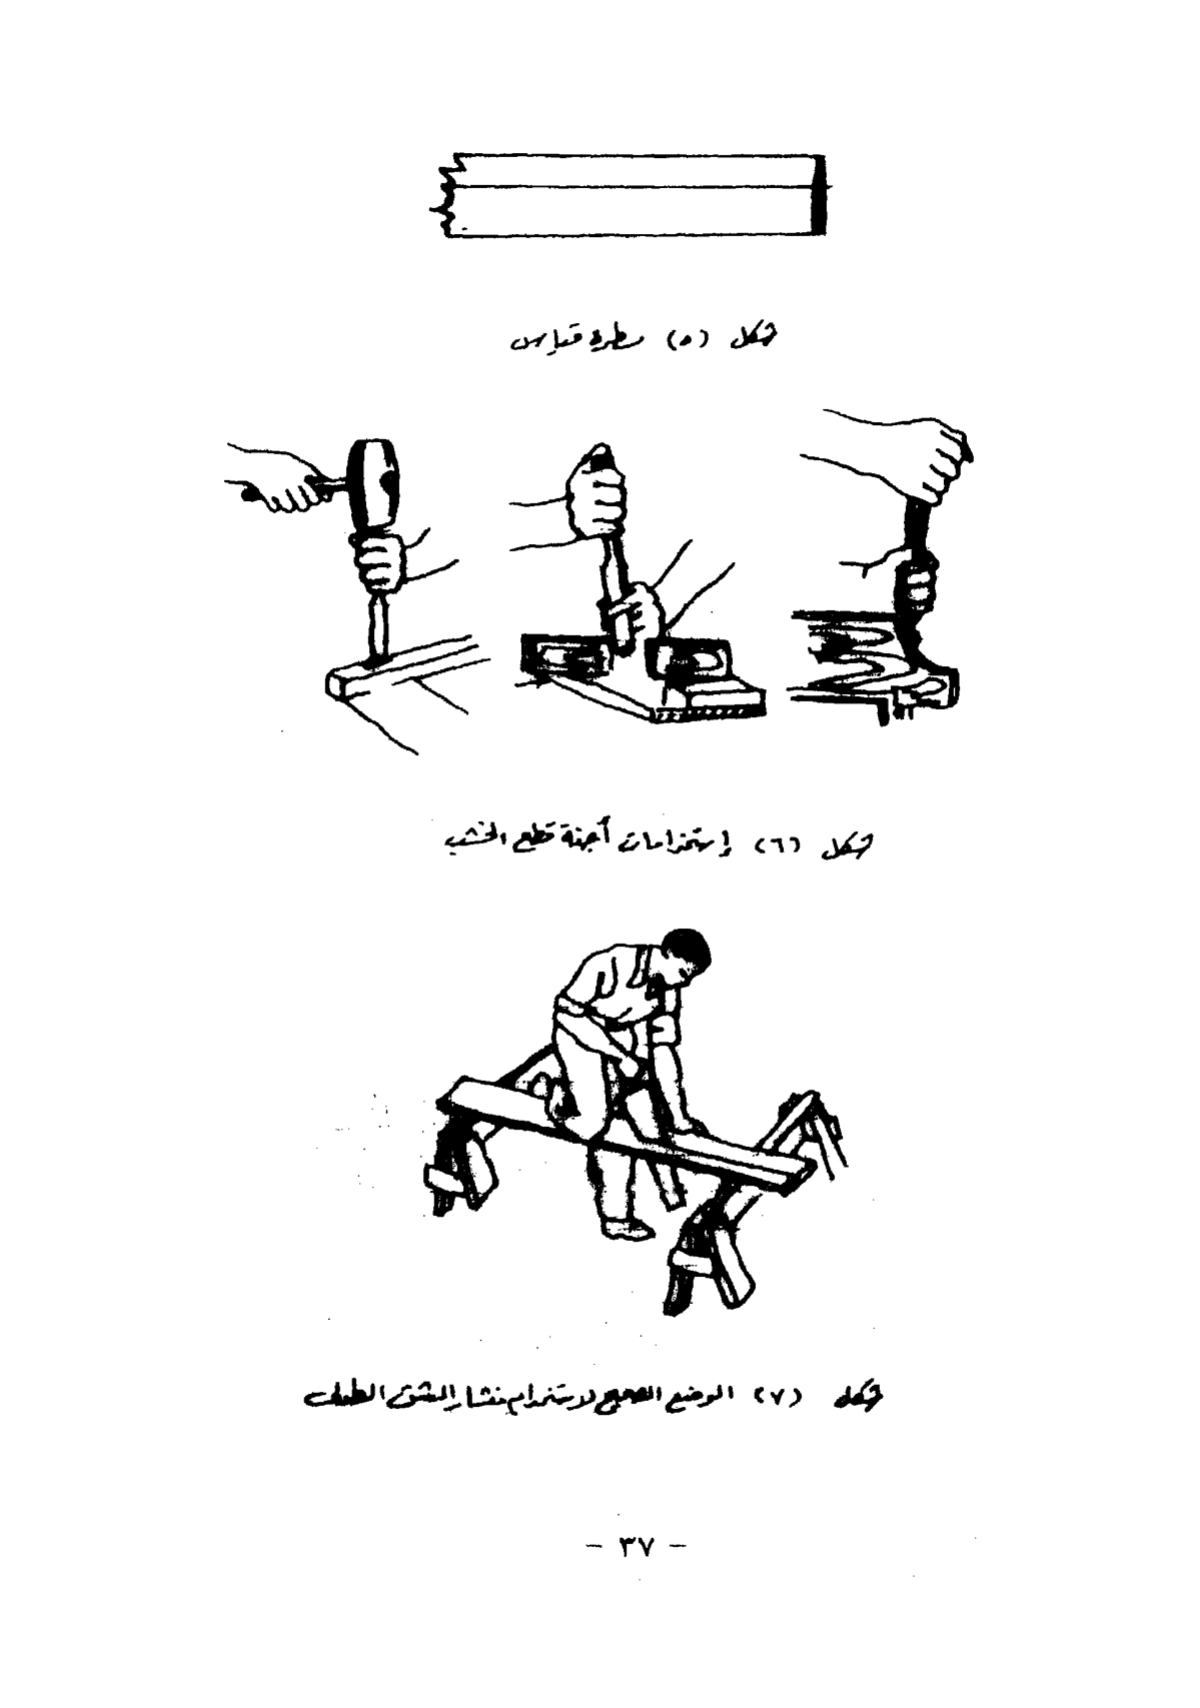 شكل (٥) مسطرة قياس
شكل (٦) إستخدامات أجنة قطع الخشب
شكل (٧) الوضع الصحيح لاستخدام منشار الشق الطولى
- ٣٧ -